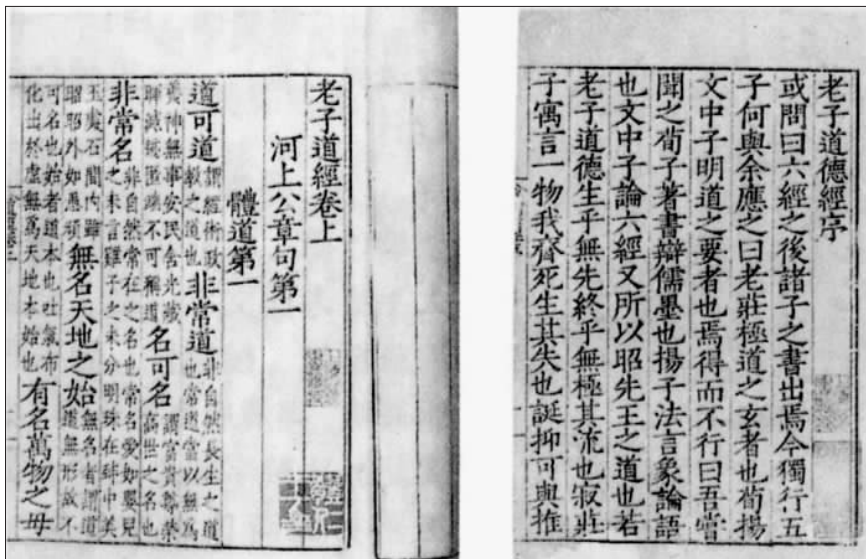 老子道德經序
或問曰六經之後諸子之書出焉今獨行五
子何與余應之曰老莊極道之玄者也荀揚
文中子明道之要者也焉得而不行曰吾嘗
聞之荀子著書辯儒墨也揚子法言象論語
也文中子論六經又所以昭先王之道也若
老子道德生乎無先終乎無極其流也寂莊
子寓言一物我齊死生其失也誕抑可與推
老子道經卷上
河上公章句第一
體道第一
道可道謂經術政教之道也非常道非自然長生之道也常道當以無爲
養神無事安民含光藏暉滅跡匿端不可稱道名可名謂富貴尊榮高世之名也
非常名非自然常在之名也常名愛如嬰兒之未言雞子之未分明珠在蚌中美
玉處石間内雖昭昭外如愚頑無名天地之始無名者謂道道無形故不
可名也始者道本也吐氣布化出於虛無爲天地本始也有名萬物之母